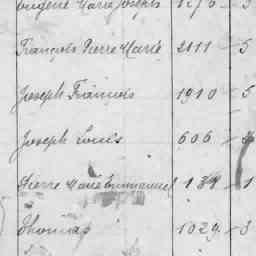 Eugène Marie Joseph 1276 3
François Pierre Marie 2111 5
Joseph Francois 1910 5
Joseph Louis 606
Pierre Marie Emmanuel 139 1
Thomas 1029 3